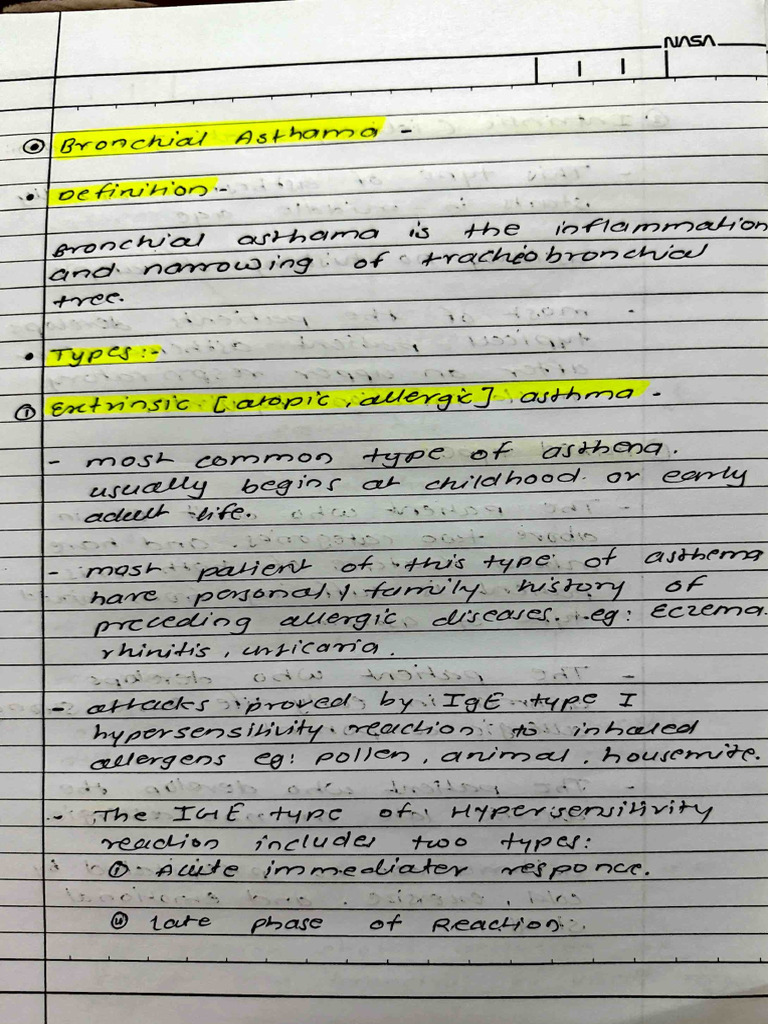 NASA
Bronchial Asthama -
• Definition:-
Bronchial asthama is the inflammation
and narrowing of tracheobronchial
tree.
• Types:-
① Extrinsic [atopic, allergic] asthma -
- most common type of asthena.
usually begins at childhood or early
adult life.
- most patient of this type of asthema
have personal / family history of
preceding allergic diseases. eg: eczema
rhinitis, urticaria.
- attacks proved by IgE type I
hypersensitivity reaction to inhaled
allergens eg: pollen, animal, housemite.
- The IGE type of Hypersensitivity
reaction includes two types:
① Acute immediater responce.
② late phase of Reaction.